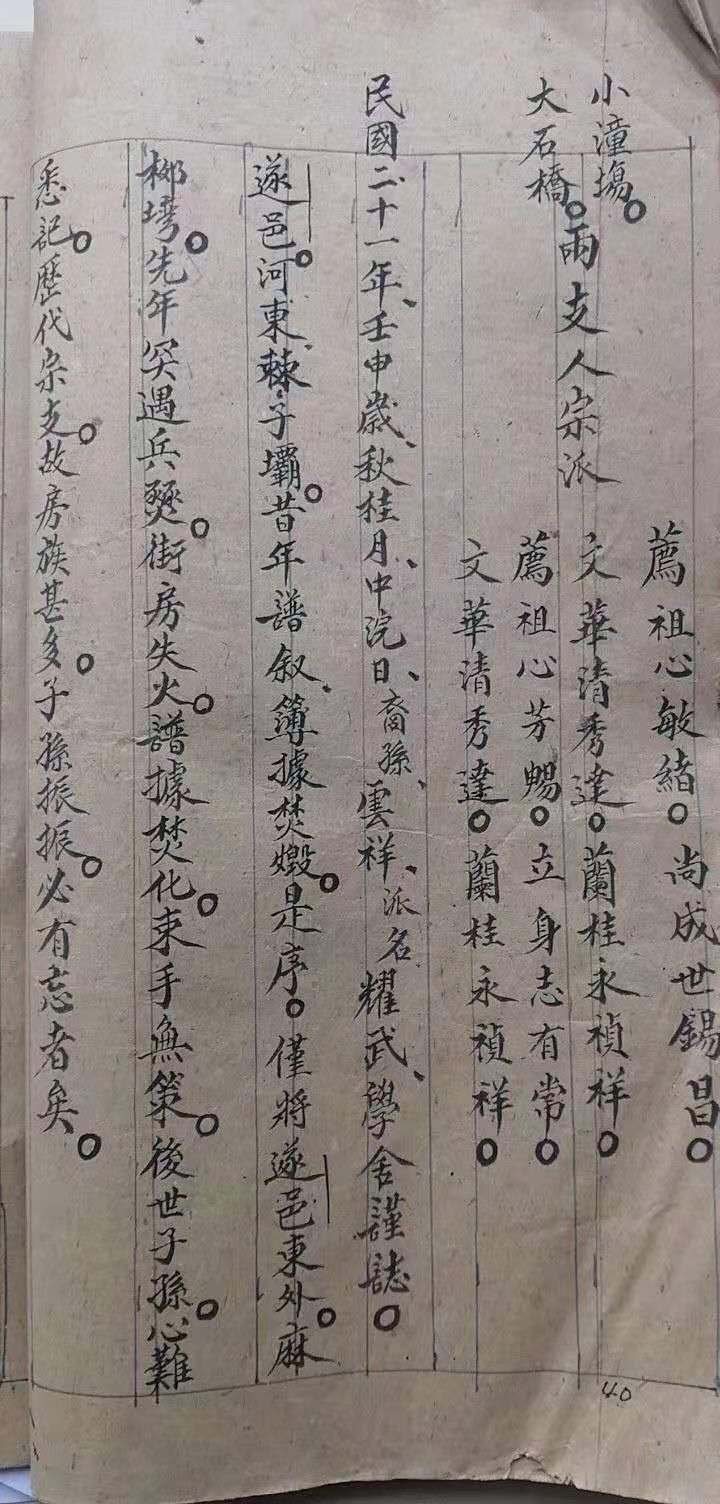 小潼塲。
大石橋。
兩支人宗派
薦祖心敏緒。尚成世錫昌。
文華清秀達。蘭桂永禎祥。
薦祖心芳暢。立身志有常。
文華清秀達。蘭桂永禎祥。
民國二十一年、壬申歲、秋桂月、中浣日、裔孫、雲祥、派名耀武、學舍謹誌。
遂邑。河東、棘子壩。昔年譜叙、簿據焚燬。是序。僅將遂邑東外。麻
柳塆。先年突遇兵燹。街房失火。譜據焚化。束手無策。後世子孫。心難
悉記。歷代宗支。故房族甚多。子孫振振。必有忘者矣。
40